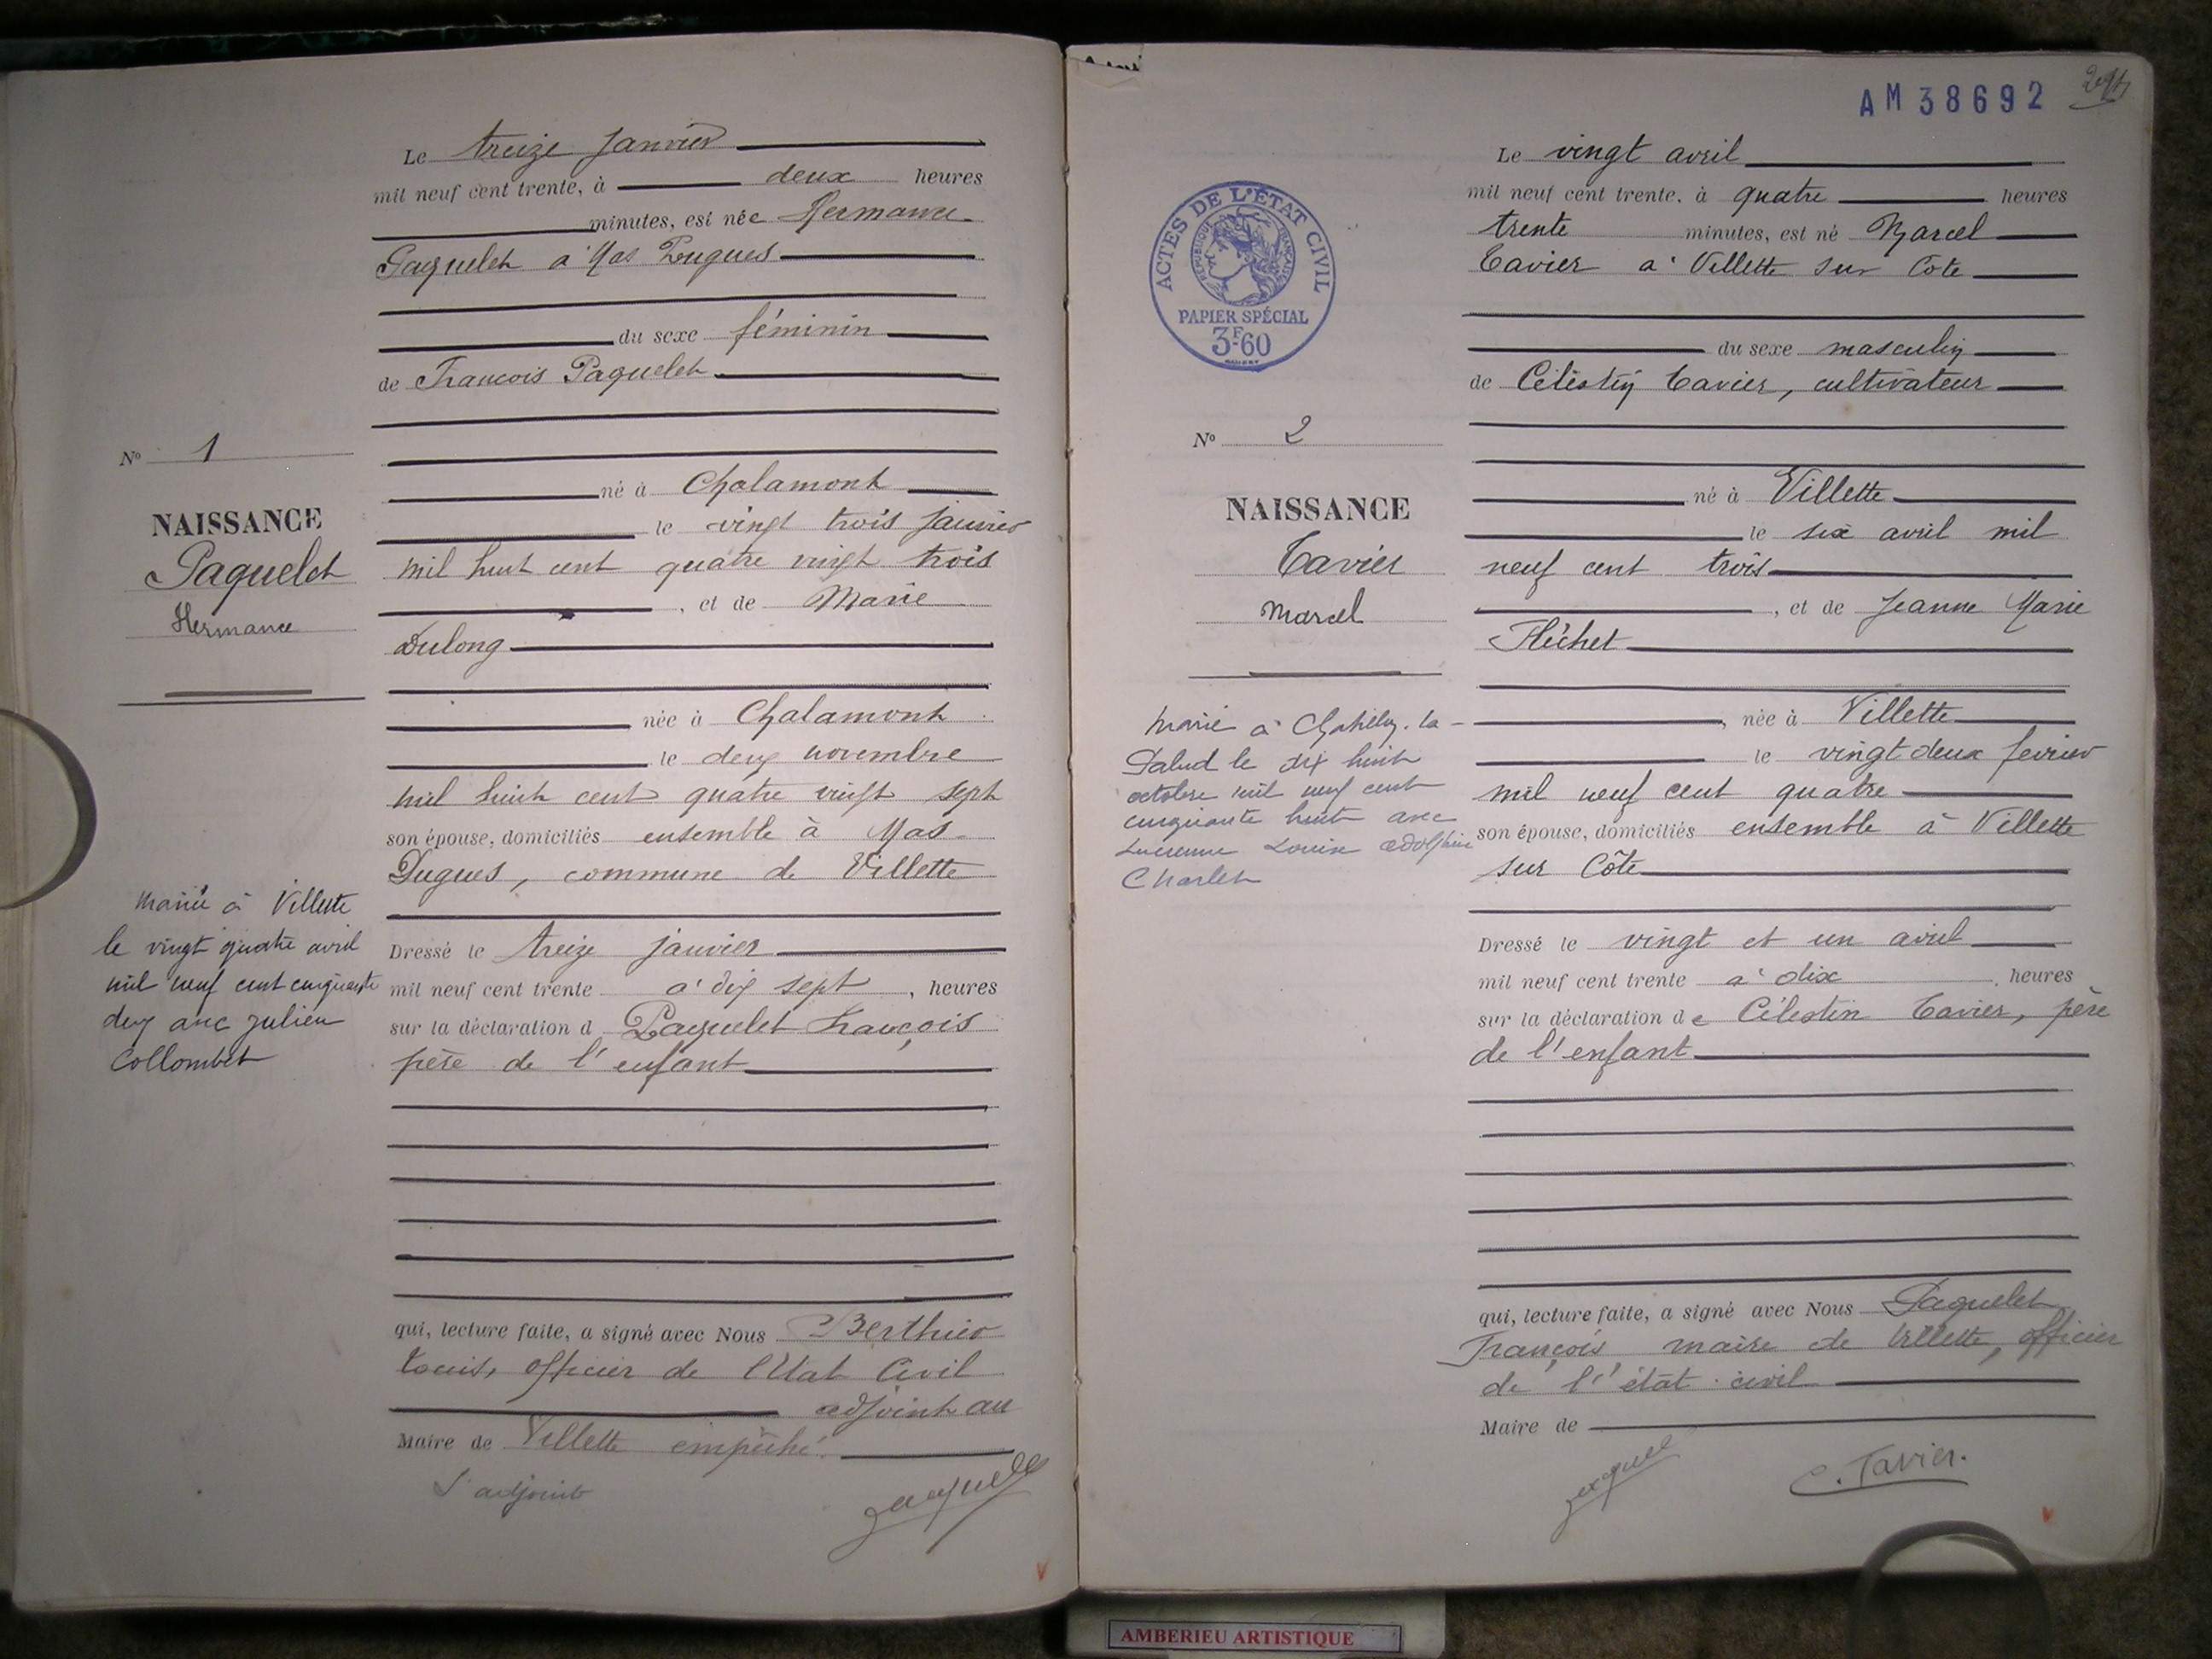 Le treize janvier
mil neuf cent trente, à deux heures
minutes, est née Hermance
Paquelet à Mas Dugues
du sexe féminin
de François Paquelet
né à Chalamont
le vingt trois janvier
mil huit cent quatre vingt trois
, et de Marie
Dulong
née à Chalamont
le deux novembre
mil huit cent quatre vingt sept
son épouse, domiciliés ensemble à Mas
Dugues, commune de Villette
Dressé le treize janvier
mil neuf cent trente à dix sept, heures
sur la déclaration d Paquelet François
père de l'enfant
qui, lecture faite, a signé avec Nous Berthier
Louis, officier de l'Etat Civil
adjoint au
Maire de Villette empêché
L'adjoint
No 1
NAISSANCE
Paquelet
Hermance
Mariée à Villette
le vingt quatre avril
mil neuf cent cinquante
deux avec Julien
Collombet
AM 38692
ACTES DE L'ÉTAT CIVIL
RÉPUBLIQUE FRANÇAISE
PAPIER SPÉCIAL
3F.60
No 2
NAISSANCE
Tavier
Marcel
Marié à Châtillon-la-
Palud le dix huit
octobre mil neuf cent
cinquante huit avec
Lucienne Louise Adolphine
Charlet
Le vingt avril
mil neuf cent trente, à quatre heures
trente minutes, est né Marcel
Tavier à Villette sur Côte
du sexe masculin
de Célestin Tavier, cultivateur
né à Villette
le six avril mil
neuf cent trois
, et de Jeanne Marie
Fléchet
, née à Villette
le vingt deux février
mil neuf cent quatre
son épouse, domiciliés ensemble à Villette
sur Côte
Dressé le vingt et un avril
mil neuf cent trente à dix, heures
sur la déclaration de Célestin Tavier, père
de l'enfant
qui, lecture faite, a signé avec Nous Paquelet
François maire de Villette, officier
de l'état civil
Maire de
C. Tavier.
AMBERIEU ARTISTIQUE